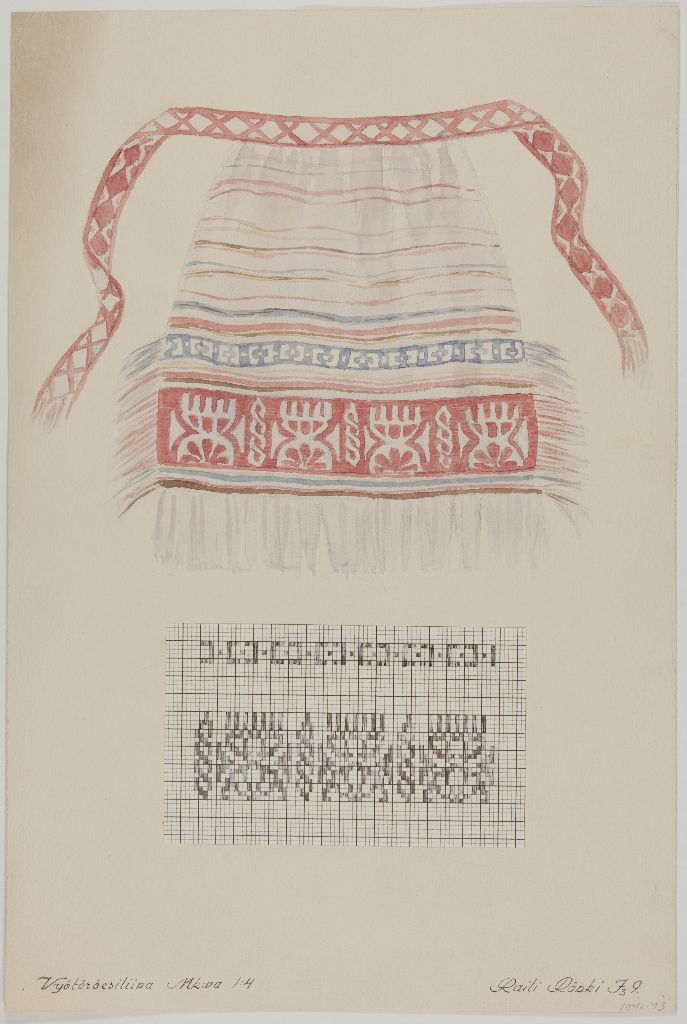 Vyötäröesiliina Mk:va 1:4
Raili Rönki F39.